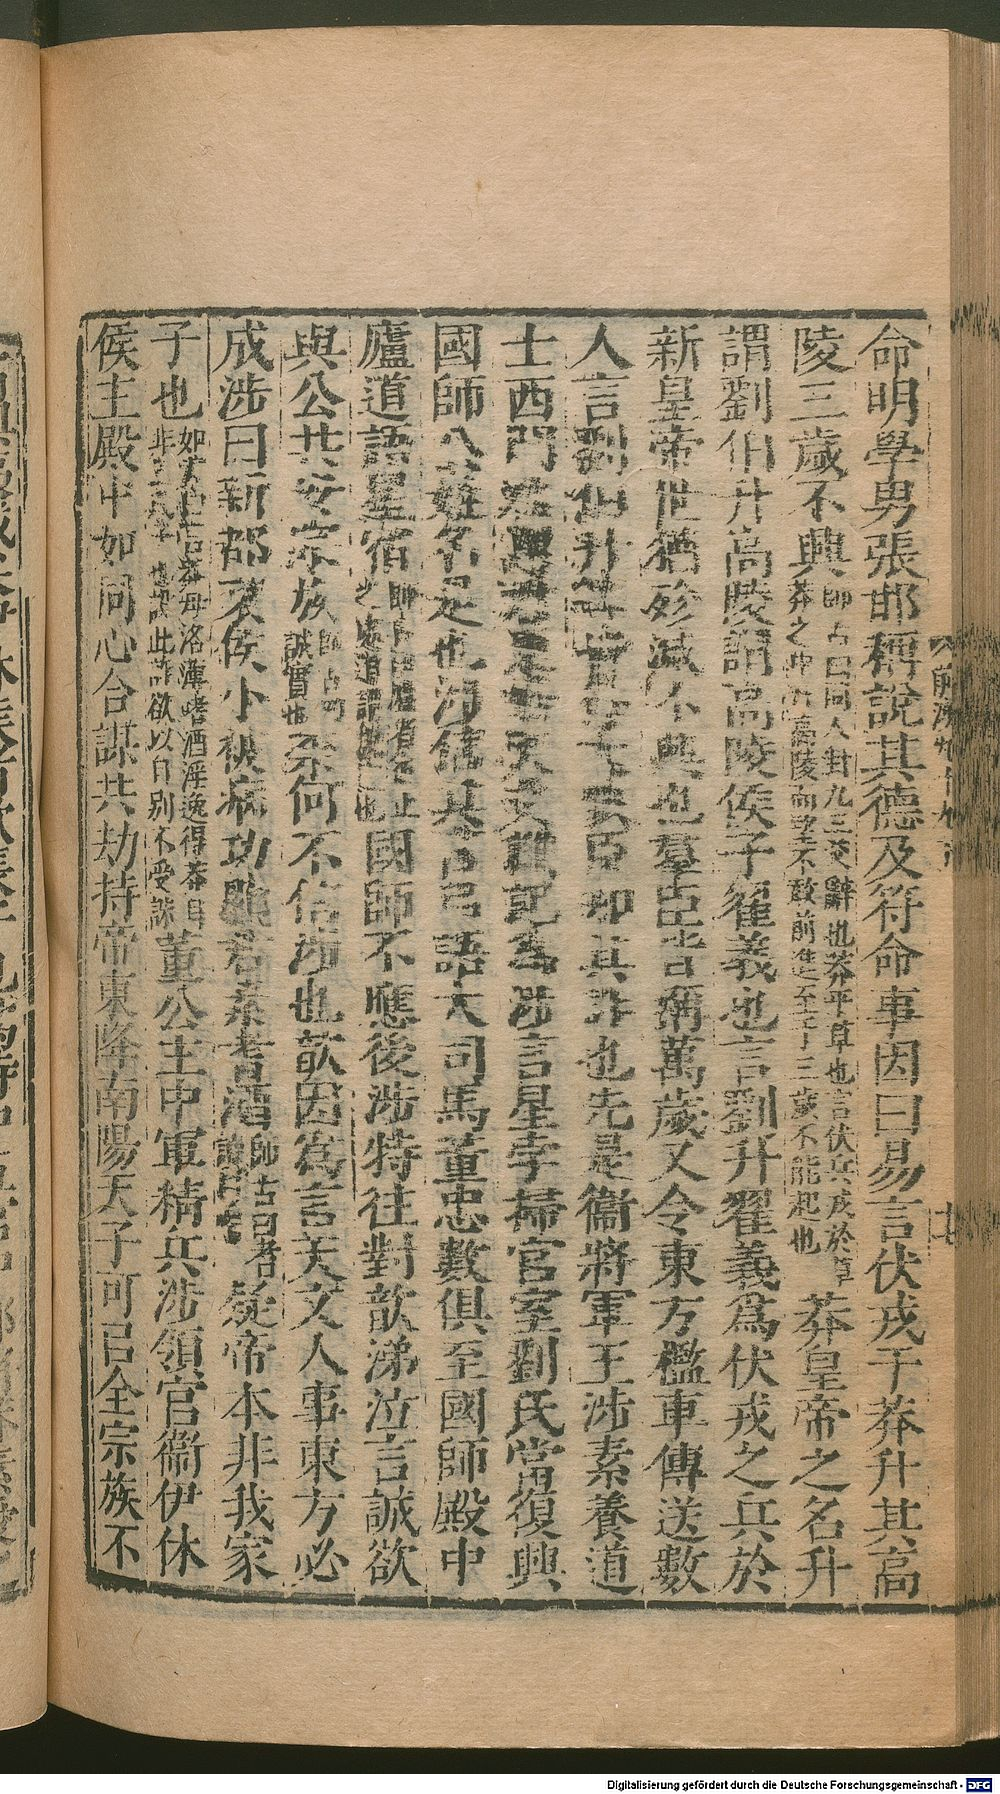 命明學男張邯稱說其德及符命事因曰易言伏戎于莽升其高
陵三歲不興師古曰同人卦九三爻辭也莽平草也言伏兵戎於草莽之中升高陵而望不敢前進至于三歲不能起也莽皇帝之名升
謂劉伯升高陵謂高陵侯子翟義也言劉升翟義爲伏戎之兵於
新皇帝世猶殄滅不興也羣臣皆稱萬歲又令東方檻車傳送數
人言劉伯升等皆行大戮民知其詐也先是衞將軍王涉素養道
士西門君惠君惠好天文讖記爲涉言星孛掃宮室劉氏當復興
國師公姓名是也涉信其言以語大司馬董忠數俱至國師殿中
廬道語星宿國師不應後涉特往對歆涕泣言誠欲
與公共安宗族師古曰誠實也柰何不信涉也歆因爲言天文人事東方必
成涉曰新都哀侯小被病功顯君素耆酒師古曰耆讀曰嗜疑帝本非我家
子也如淳曰言莽母洛薄嗜酒淫逸得莽耳非王氏子也設此詐欲以自別不受誅董公主中軍精兵涉領宮衞伊休
侯主殿中如同心合謀共劫持帝東降南陽天子可以全宗族不
前漢
Digitalisierung gefördert durch die Deutsche Forschungsgemeinschaft - DFG